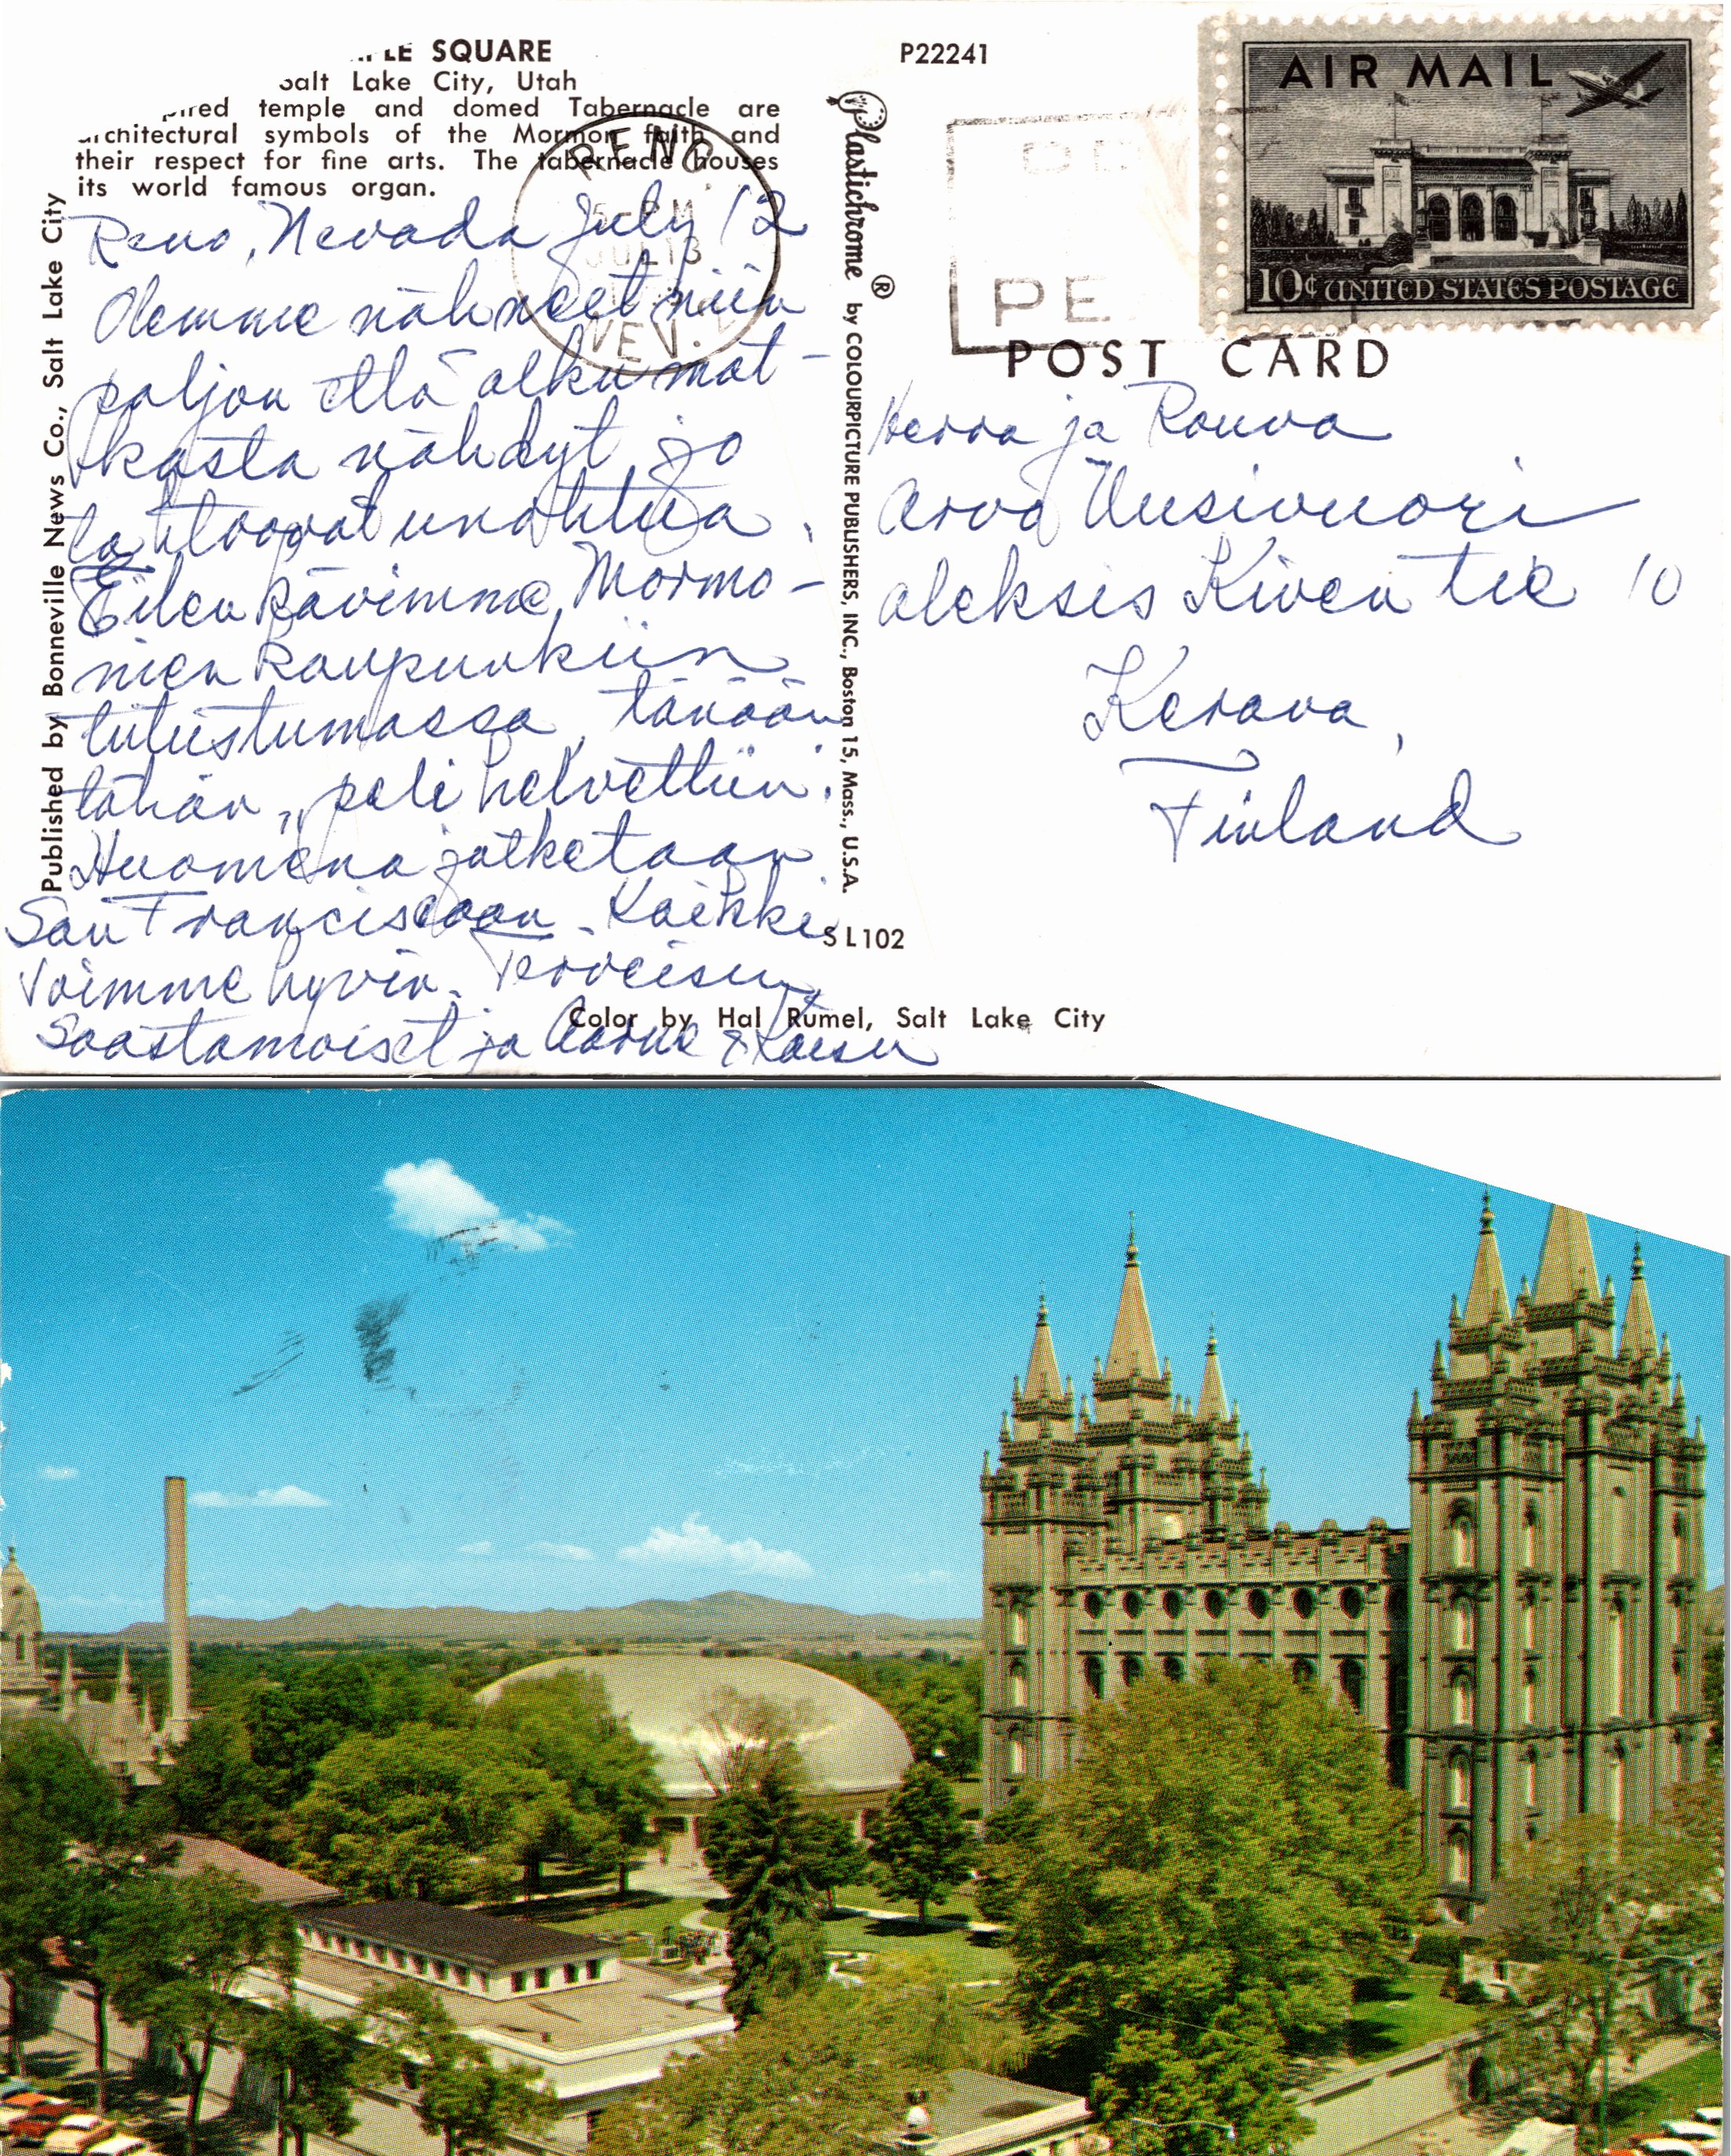 SQUARE
Salt Lake City, Utah
temple and domed Tabernacle are
architectural symbols of the Mormon faith and
their respect for fine arts. The tabernacle houses
its world famous organ.
Reno, Nevada July 12
Olemme nähneet niin
paljon että alku mat-
kasta nähdyt jo
tahtoovat unohtua.
Eilen kävimme Mormo-
nien kaupunkiin
tutustumassa, tänään
tähän „peli helvettiin.
Huomena jatketaan
San Franciscoon. Kaikki
Voimme hyvin. Terveisin
Saastamoiset ja Aarne & Kaisu
Published by Bonneville News Co., Salt Lake City
RENO
5- PM
JUL 13
NEV.
Plastichrome ® by COLOURPICTURE PUBLISHERS, INC., Boston 15, Mass., U.S.A.
SL102
Color by Hal Rumel, Salt Lake City
P22241
AIR MAIL
10¢ UNITED STATES POSTAGE
PE
POST CARD
Herra ja Rouva
Arvo Uusivuori
Aleksis Kiven tie 10
Kerava,
Finland